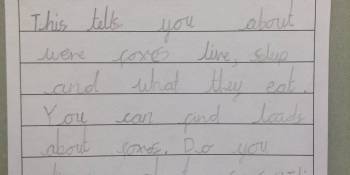 This tells you about
were foxes live, slup
and what they eat.
You can find loads
about foxes. Do you